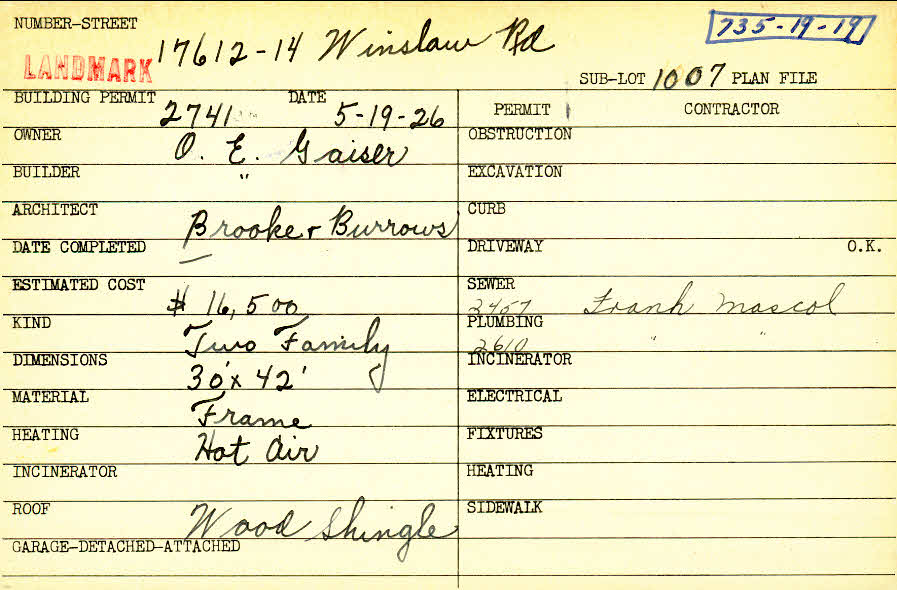 NUMBER-STREET
17612-14 Winslow Rd
735-19-19
LANDMARK
SUB-LOT 1007 PLAN FILE
BUILDING PERMIT 2741 DATE 5-19-26
PERMIT CONTRACTOR
OWNER O. E. Gaiser
OBSTRUCTION
BUILDER "
EXCAVATION
ARCHITECT Brooker Burrows
CURB
DATE COMPLETED —
DRIVEWAY O.K.
ESTIMATED COST $ 16,500
SEWER 2457 Frank Mascol
KIND Two Family
PLUMBING 2610 " "
DIMENSIONS 30' x 42'
INCINERATOR
MATERIAL Frame
ELECTRICAL
HEATING Hot Air
FIXTURES
INCINERATOR
HEATING
ROOF Wood Shingle
SIDEWALK
GARAGE-DETACHED-ATTACHED